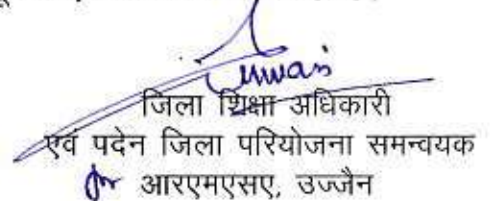 जिला शिक्षा अधिकारी
एवं पदेन जिला परियोजना समन्वयक
for आरएमएसए, उज्जैन